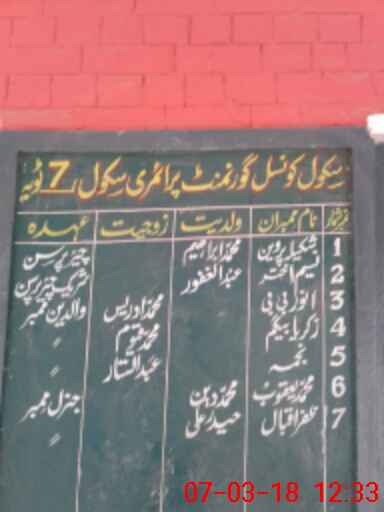 سکول کونسل گورنمنٹ پرائمری سکول 7 ٹوبہ
نمبرشمار نام ممبران ولدیت زوجیت عہدہ
1 شکیلہ پروین محمد ابراھیم چیئرپرسن
2 نسیم اختر عبدالغفور شریک چیئرپرسن
3 انور بی بی محمد ادریس والدین ممبر
4 زکریا بیگم محمد قیوم "
5 نجمہ عبدالستار "
6 محمد یعقوب محمد دین جنرل ممبر
7 ظفر اقبال حیدر علی "
07-03-18 12:33